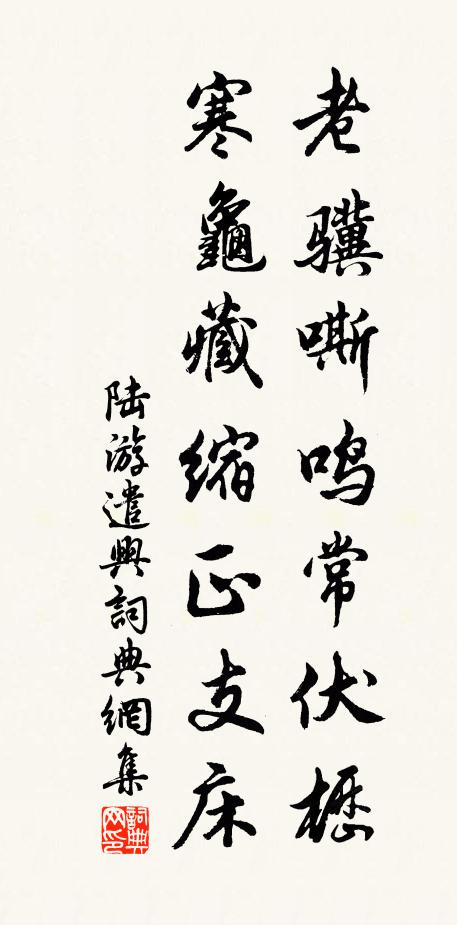 老骥嘶鸣常伏櫪
寒龜藏缩正支床
陆游遣興詞典網集
詞典网印